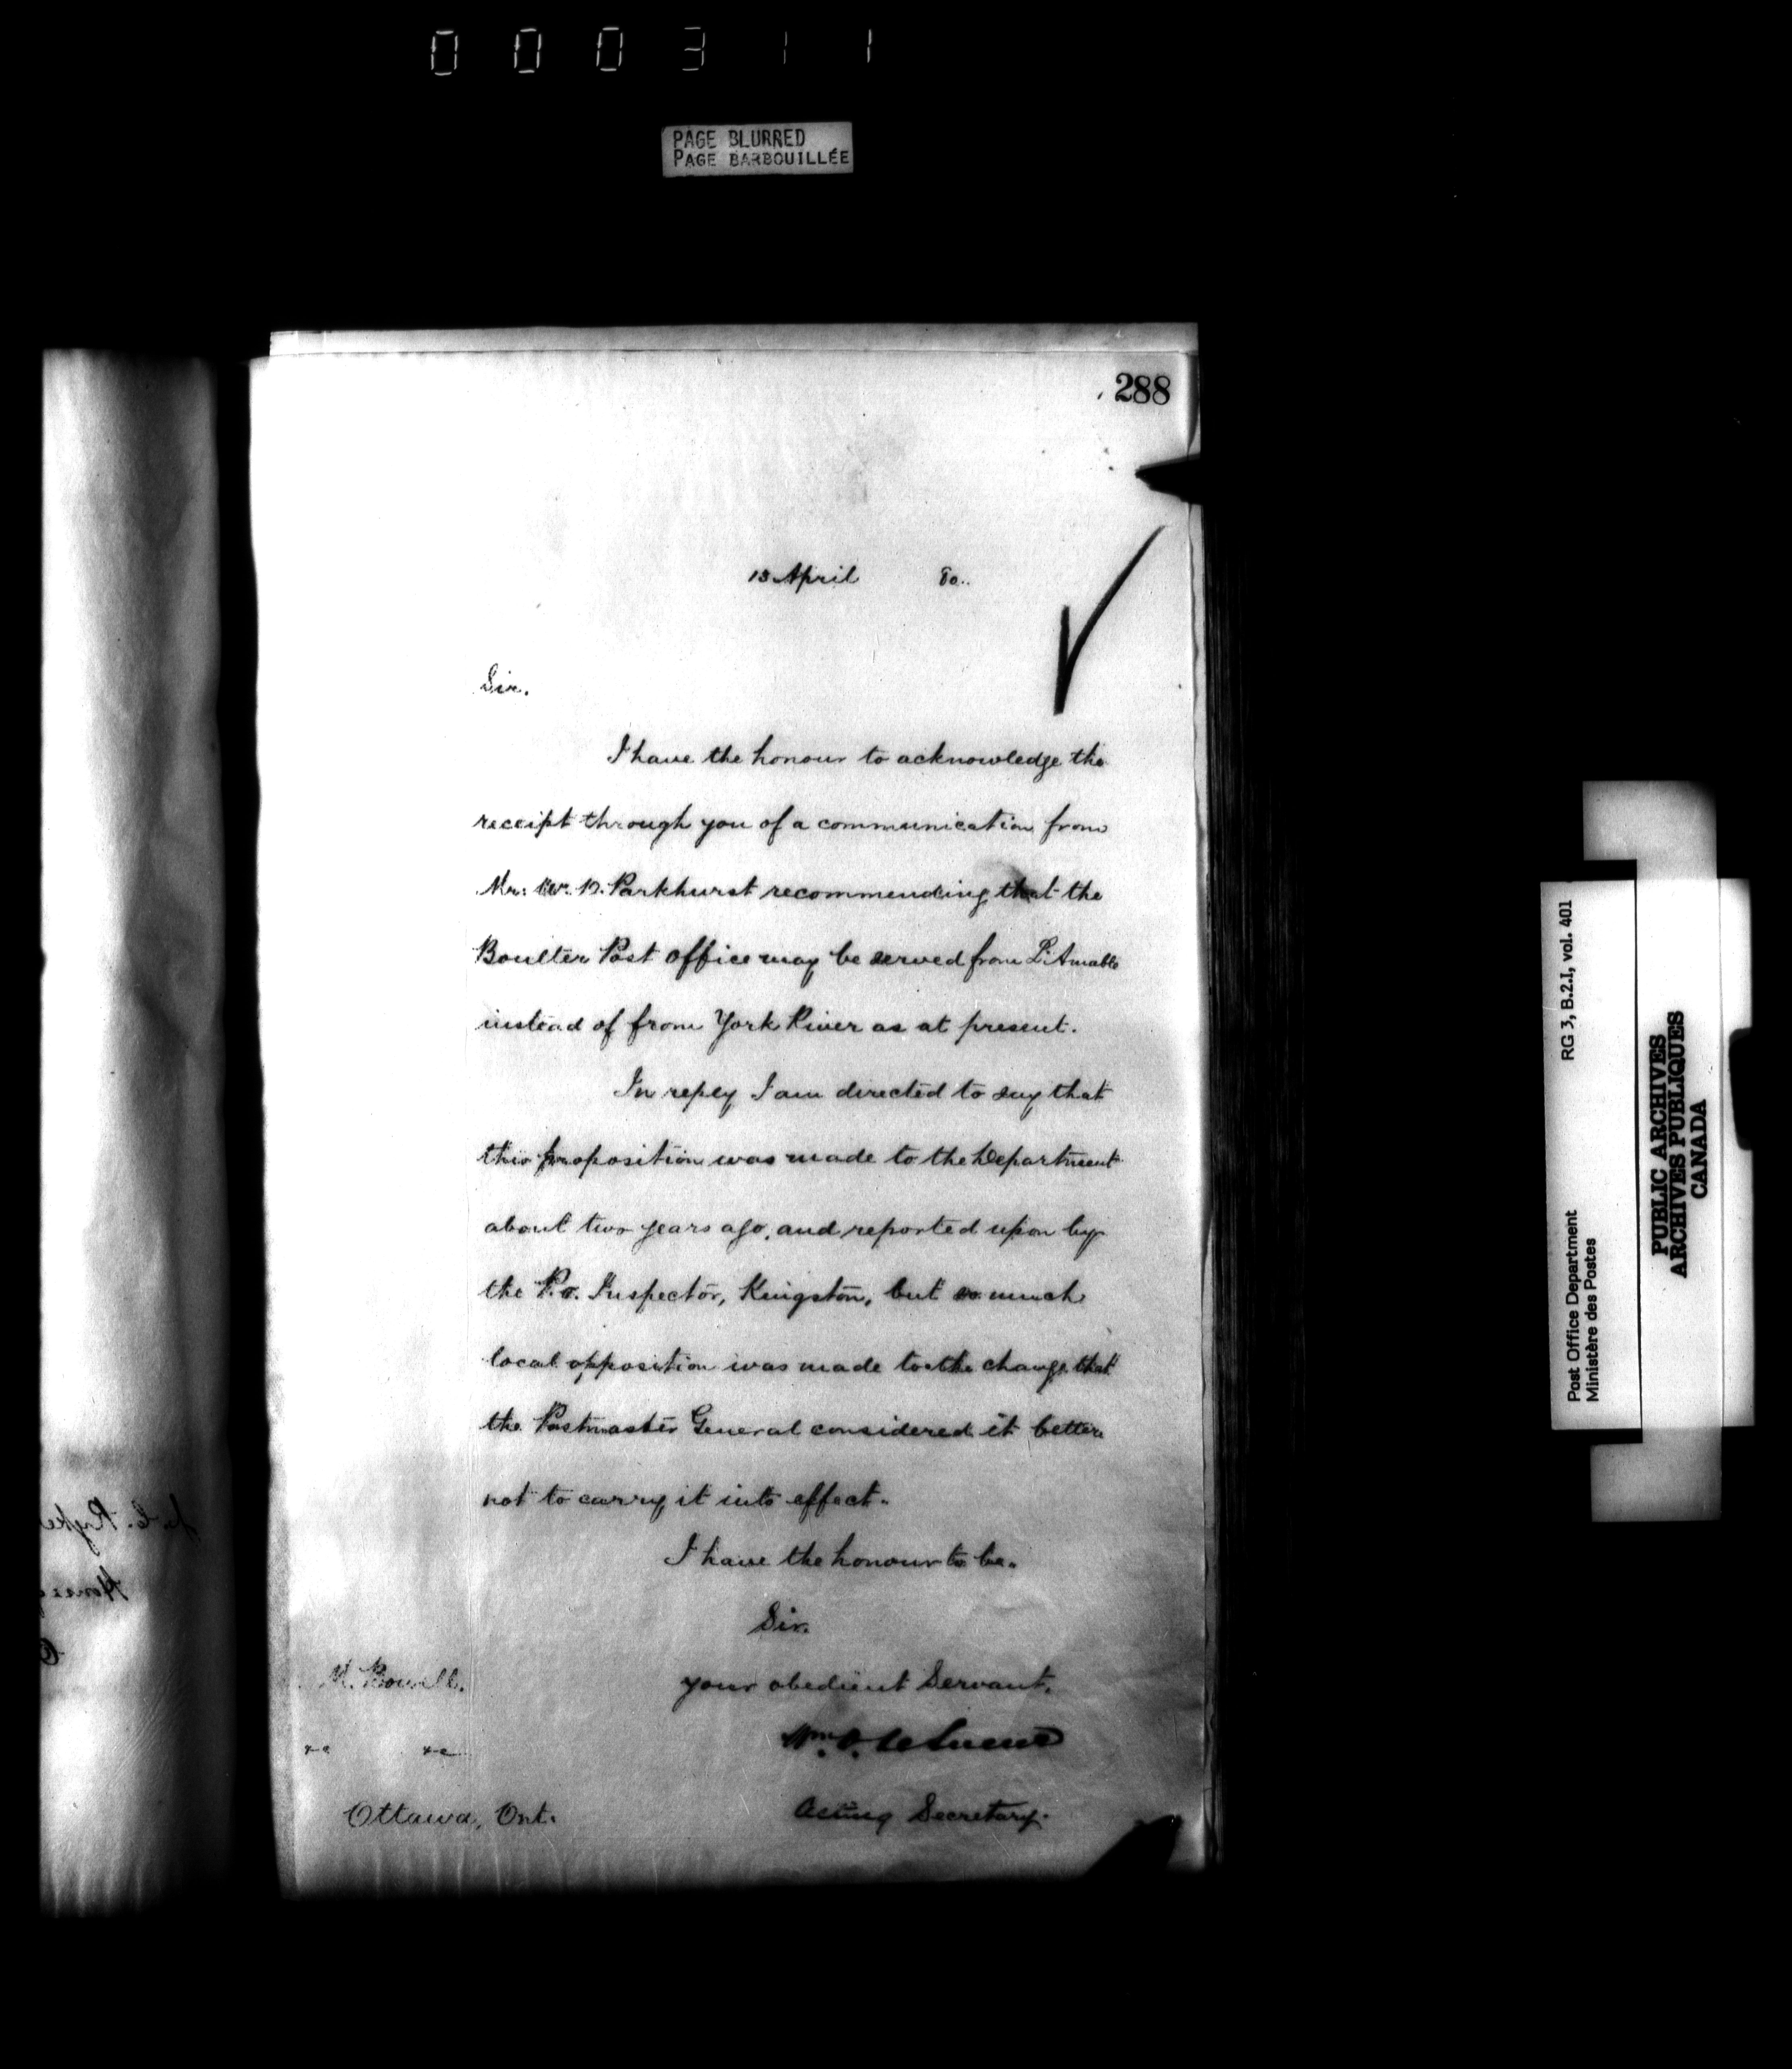 000311
PAGE BLURRED
PAGE BARBOUILLÉE
288
April 80.
Sir.
I have the honour to acknowledge the
receipt through you of a communication from
Mr. Parkhurst recommending that the
Boulter Post Office may be served from L'Amable
instead of from York River as at present.
In reply I am directed to say that
this proposition was made to the Department
about two years ago, and reported upon by
the P.O. Inspector, Kingston, but so much
local opposition was made to the change that
the Postmaster General considered it better
not to carry it into effect.
I have the honour to be.
Sir.
your obedient Servant.
Acting Secretary.
M. Bowell.
&c &c
Ottawa, Ont.
RG 3, B.2.I, vol. 401
Post Office Department
Ministère des Postes
PUBLIC ARCHIVES
ARCHIVES PUBLIQUES
CANADA